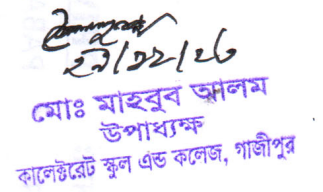 ২৭/১২/২৩
মোঃ মাহবুব আলম
উপাধ্যক্ষ
কালেক্টরেট স্কুল এন্ড কলেজ, গাজীপুর